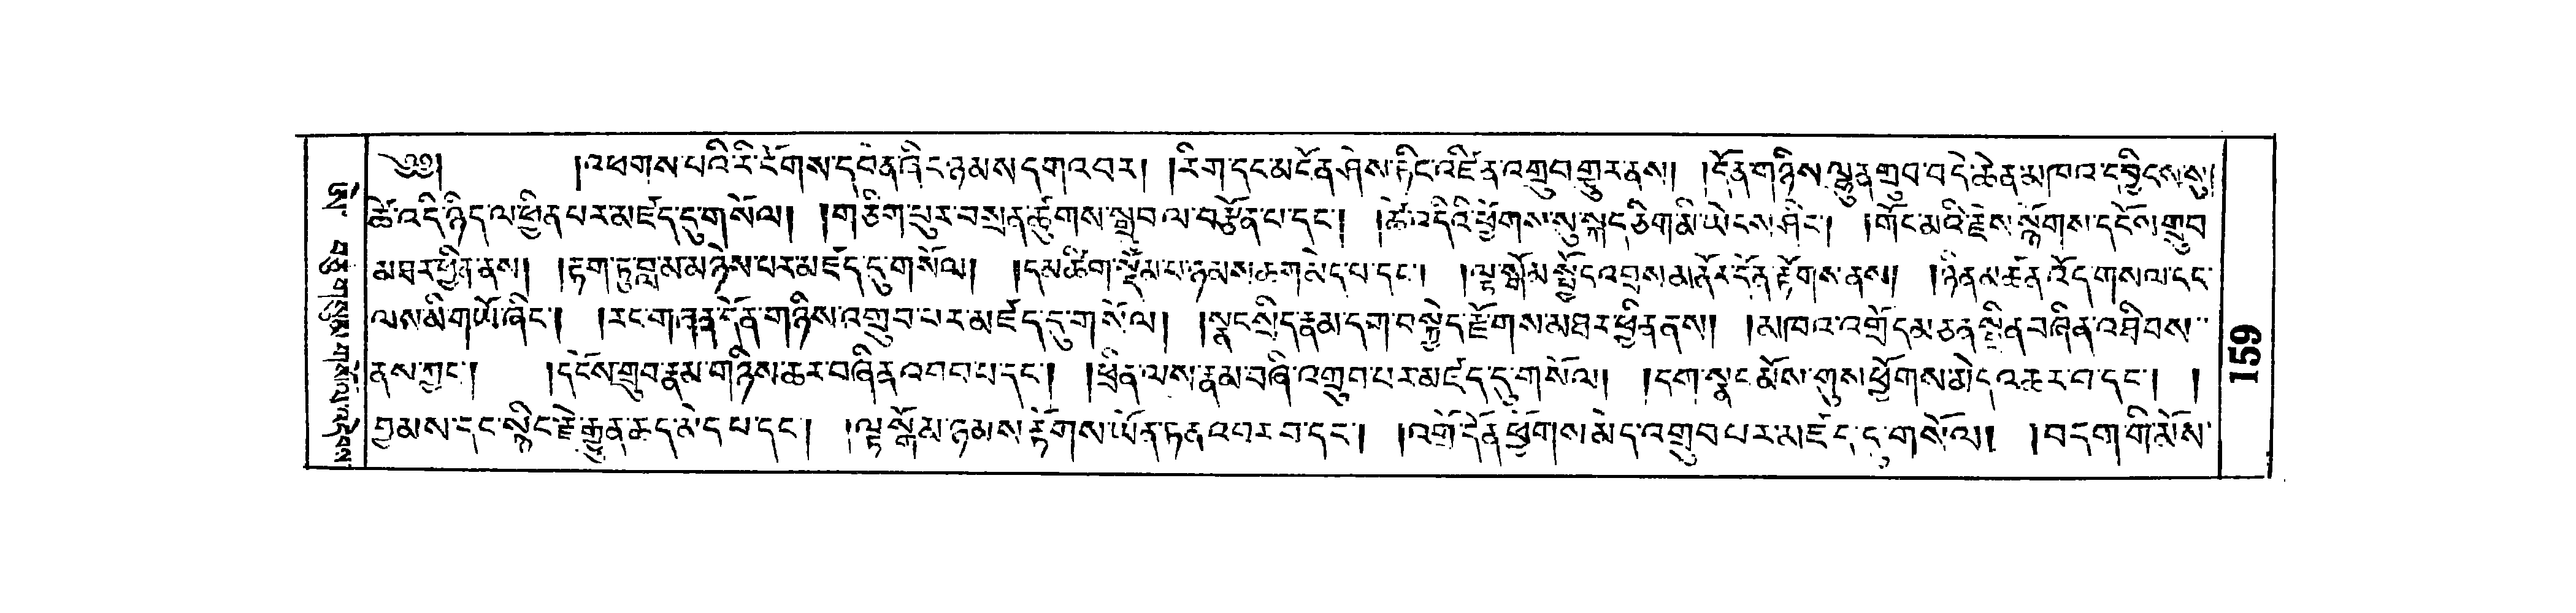 ༄༅། །འཕགས་པའི་རི་ངོགས་དབེན་ཞིང་ཉམས་དགའ་བར། །རིག་དང་མངོན་ཤེས་ཏིང་འཛིན་འགྲུབ་གྱུར་ནས། །དོན་གཉིས་ལྷུན་གྲུབ་བདེ་ཆེན་མཁའ་དབྱིངས་སུ།
ཚེ་འདི་ཉིད་ལ་ཕྱིན་པར་མཛོད་དུ་གསོལ། །གཅིག་པུར་བསྲན་ཚུགས་སྒྲུབ་ལ་བརྩོན་པ་དང་། །ཚེ་འདིའི་ཕྱོགས་སུ་སྐད་ཅིག་མི་ཡེངས་ཤིང་། །གོང་མའི་རྗེས་སྙོགས་དངོས་གྲུབ་
མཐར་ཕྱིན་ནས། །རྟག་ཏུ་བླ་མ་མཉེས་པར་མཛོད་དུ་གསོལ། །དམ་ཚིག་སྡོམ་པ་ཉམས་ཆག་མེད་པ་དང་། །ལྟ་སྒོམ་སྤྱོད་འབྲས་མ་ནོར་དོན་རྟོགས་ནས། །ཉིན་མཚན་འོད་གསལ་དང་
ལས་མི་གཡོ་ཞིང་། །རང་གཞན་དོན་གཉིས་འགྲུབ་པར་མཛོད་དུ་གསོལ། །སྣང་སྲིད་རྣམ་དག་བསྐྱེད་རྫོགས་མཐར་ཕྱིན་ནས། །མཁའ་འགྲོ་དམ་ཅན་སྤྲིན་བཞིན་འཐིབས་
ནས་ཀྱང་། །དངོས་གྲུབ་རྣམ་གཉིས་ཆར་བཞིན་འབབ་པ་དང་། །ཕྲིན་ལས་རྣམ་བཞི་འགྲུབ་པར་མཛོད་དུ་གསོལ། །དག་སྣང་མོས་གུས་ཕྱོགས་མེད་འཆར་བ་དང་། །
བྱམས་དང་སྙིང་རྗེ་རྒྱུན་ཆད་མེད་པ་དང་། །ལྟ་སྒོམ་ཉམས་རྟོགས་ཡོན་ཏན་འབར་བ་དང་། །འགྲོ་དོན་ཕྱོགས་མེད་འགྲུབ་པར་མཛོད་དུ་གསོལ། །བདག་གི་མོས་
159